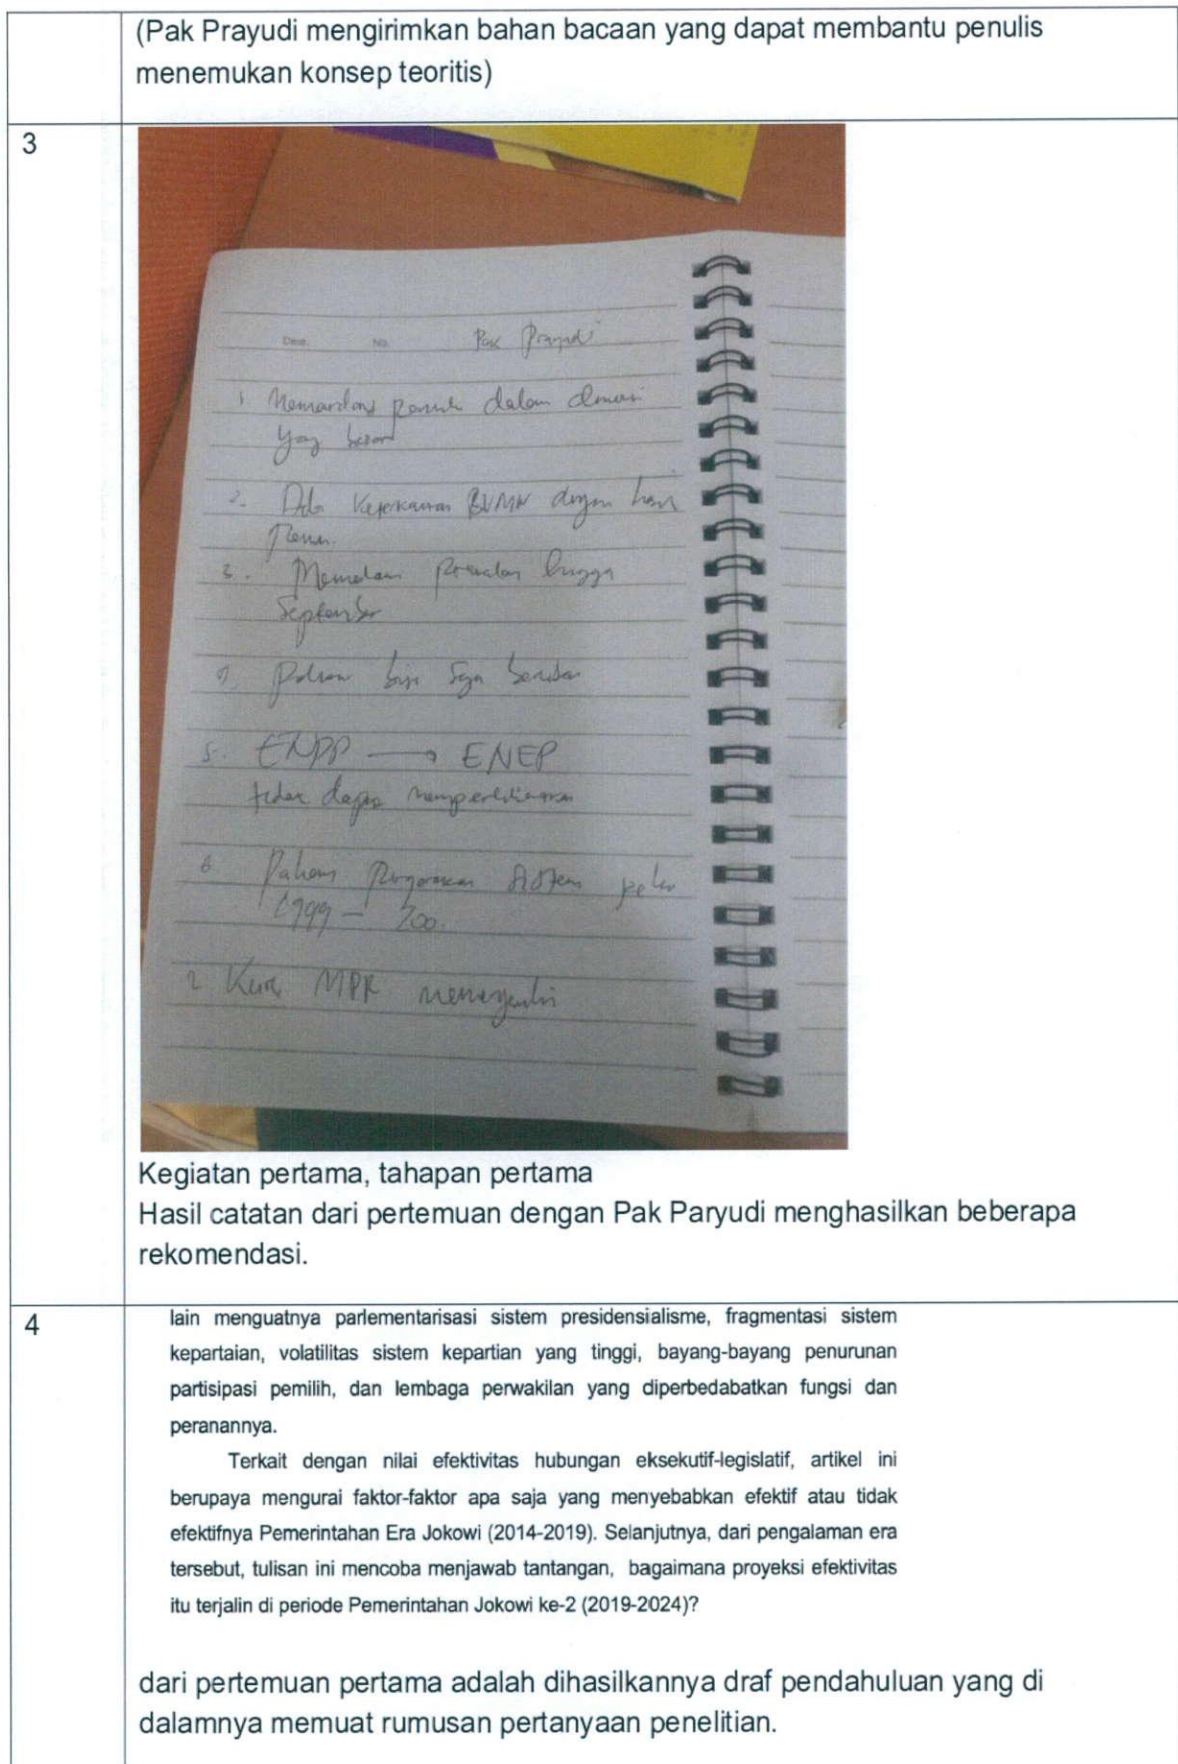 (Pak Prayudi mengirimkan bahan bacaan yang dapat membantu penulis
menemukan konsep teoritis)
3
Date. No. Pak Prayudi
1 dalam
yang
2. BUMN dengan
3. hingga
September
5. ENPP → ENEP
tidak
6. Pahami sistem
1999 - 200.
MPR
Kegiatan pertama, tahapan pertama
Hasil catatan dari pertemuan dengan Pak Paryudi menghasilkan beberapa
rekomendasi.
4
lain menguatnya parlementarisasi sistem presidensialisme, fragmentasi sistem
kepartaian, volatilitas sistem kepartian yang tinggi, bayang-bayang penurunan
partisipasi pemilih, dan lembaga perwakilan yang diperbedabatkan fungsi dan
peranannya.
Terkait dengan nilai efektivitas hubungan eksekutif-legislatif, artikel ini
berupaya mengurai faktor-faktor apa saja yang menyebabkan efektif atau tidak
efektifnya Pemerintahan Era Jokowi (2014-2019). Selanjutnya, dari pengalaman era
tersebut, tulisan ini mencoba menjawab tantangan, bagaimana proyeksi efektivitas
itu terjalin di periode Pemerintahan Jokowi ke-2 (2019-2024)?
dari pertemuan pertama adalah dihasilkannya draf pendahuluan yang di
dalamnya memuat rumusan pertanyaan penelitian.